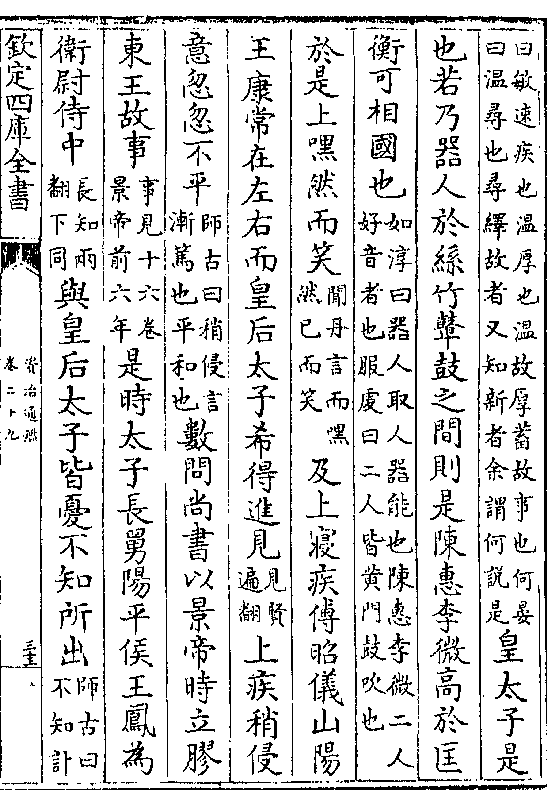 曰敏速疾也温厚也温故厚蓄故事也何晏
曰温尋也尋繹故者又知新者余謂何説是皇太子是
也若乃器人於絲竹鼙鼓之間則是陳惠李微髙於匡
衡可相國也如淳曰器人取人器能也陳惠李微二人
好音者也服䖍曰二人皆黄門鼓吹也
於是上嘿然而笑聞丹言而嘿
然已而笑及上寢疾傅昭儀山陽
王康常在左右而皇后太子希得進見見賢
遍翻上疾稍侵
意忽忽不平師古曰稍侵言
漸篤也平和也數問尚書以景帝時立膠
東王故事事見十六卷
景帝前六年是時太子長舅陽平侯王鳳為
衛尉侍中長知兩
翻下同與皇后太子皆憂不知所出師古曰
不知計
欽定四庫全書
資治通鑑
卷二十九